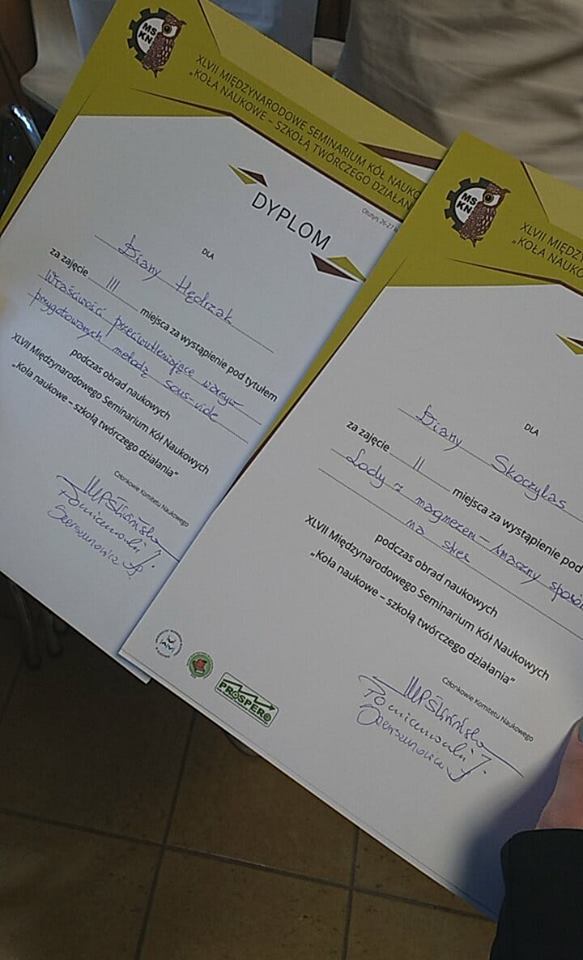 MS
KN
XLVII MIĘDZYNARODOWE SEMINARIUM KÓŁ NAUKO
„KOŁA NAUKOWE – SZKOŁĄ TWÓRCZEGO DZIAŁAN
Olsztyn 26-27
DYPLOM
DLA
Diany Hędrzak
za zajęcie III miejsca za wystąpienie pod tytułem
Właściwości przeciwutleniające warzyw
przygotowanych metodą sous-vide
podczas obrad naukowych
XLVII Międzynarodowego Seminarium Kół Naukowych
„Koła naukowe – szkołą twórczego działania"
Członkowie Komitetu Naukowego
MS
KN
XLVII MIĘD
„KOŁA NAUKO
DLA
Diany Skoczylas
za zajęcie II miejsca za wystąpienie pod
Lody z magnezem – smaczny sposó
na stres
podczas obrad naukowych
XLVII Międzynarodowego Seminarium Kół Naukowych
„Koła naukowe – szkołą twórczego działania"
Członkowie Komitetu Naukowego
PROSPERO